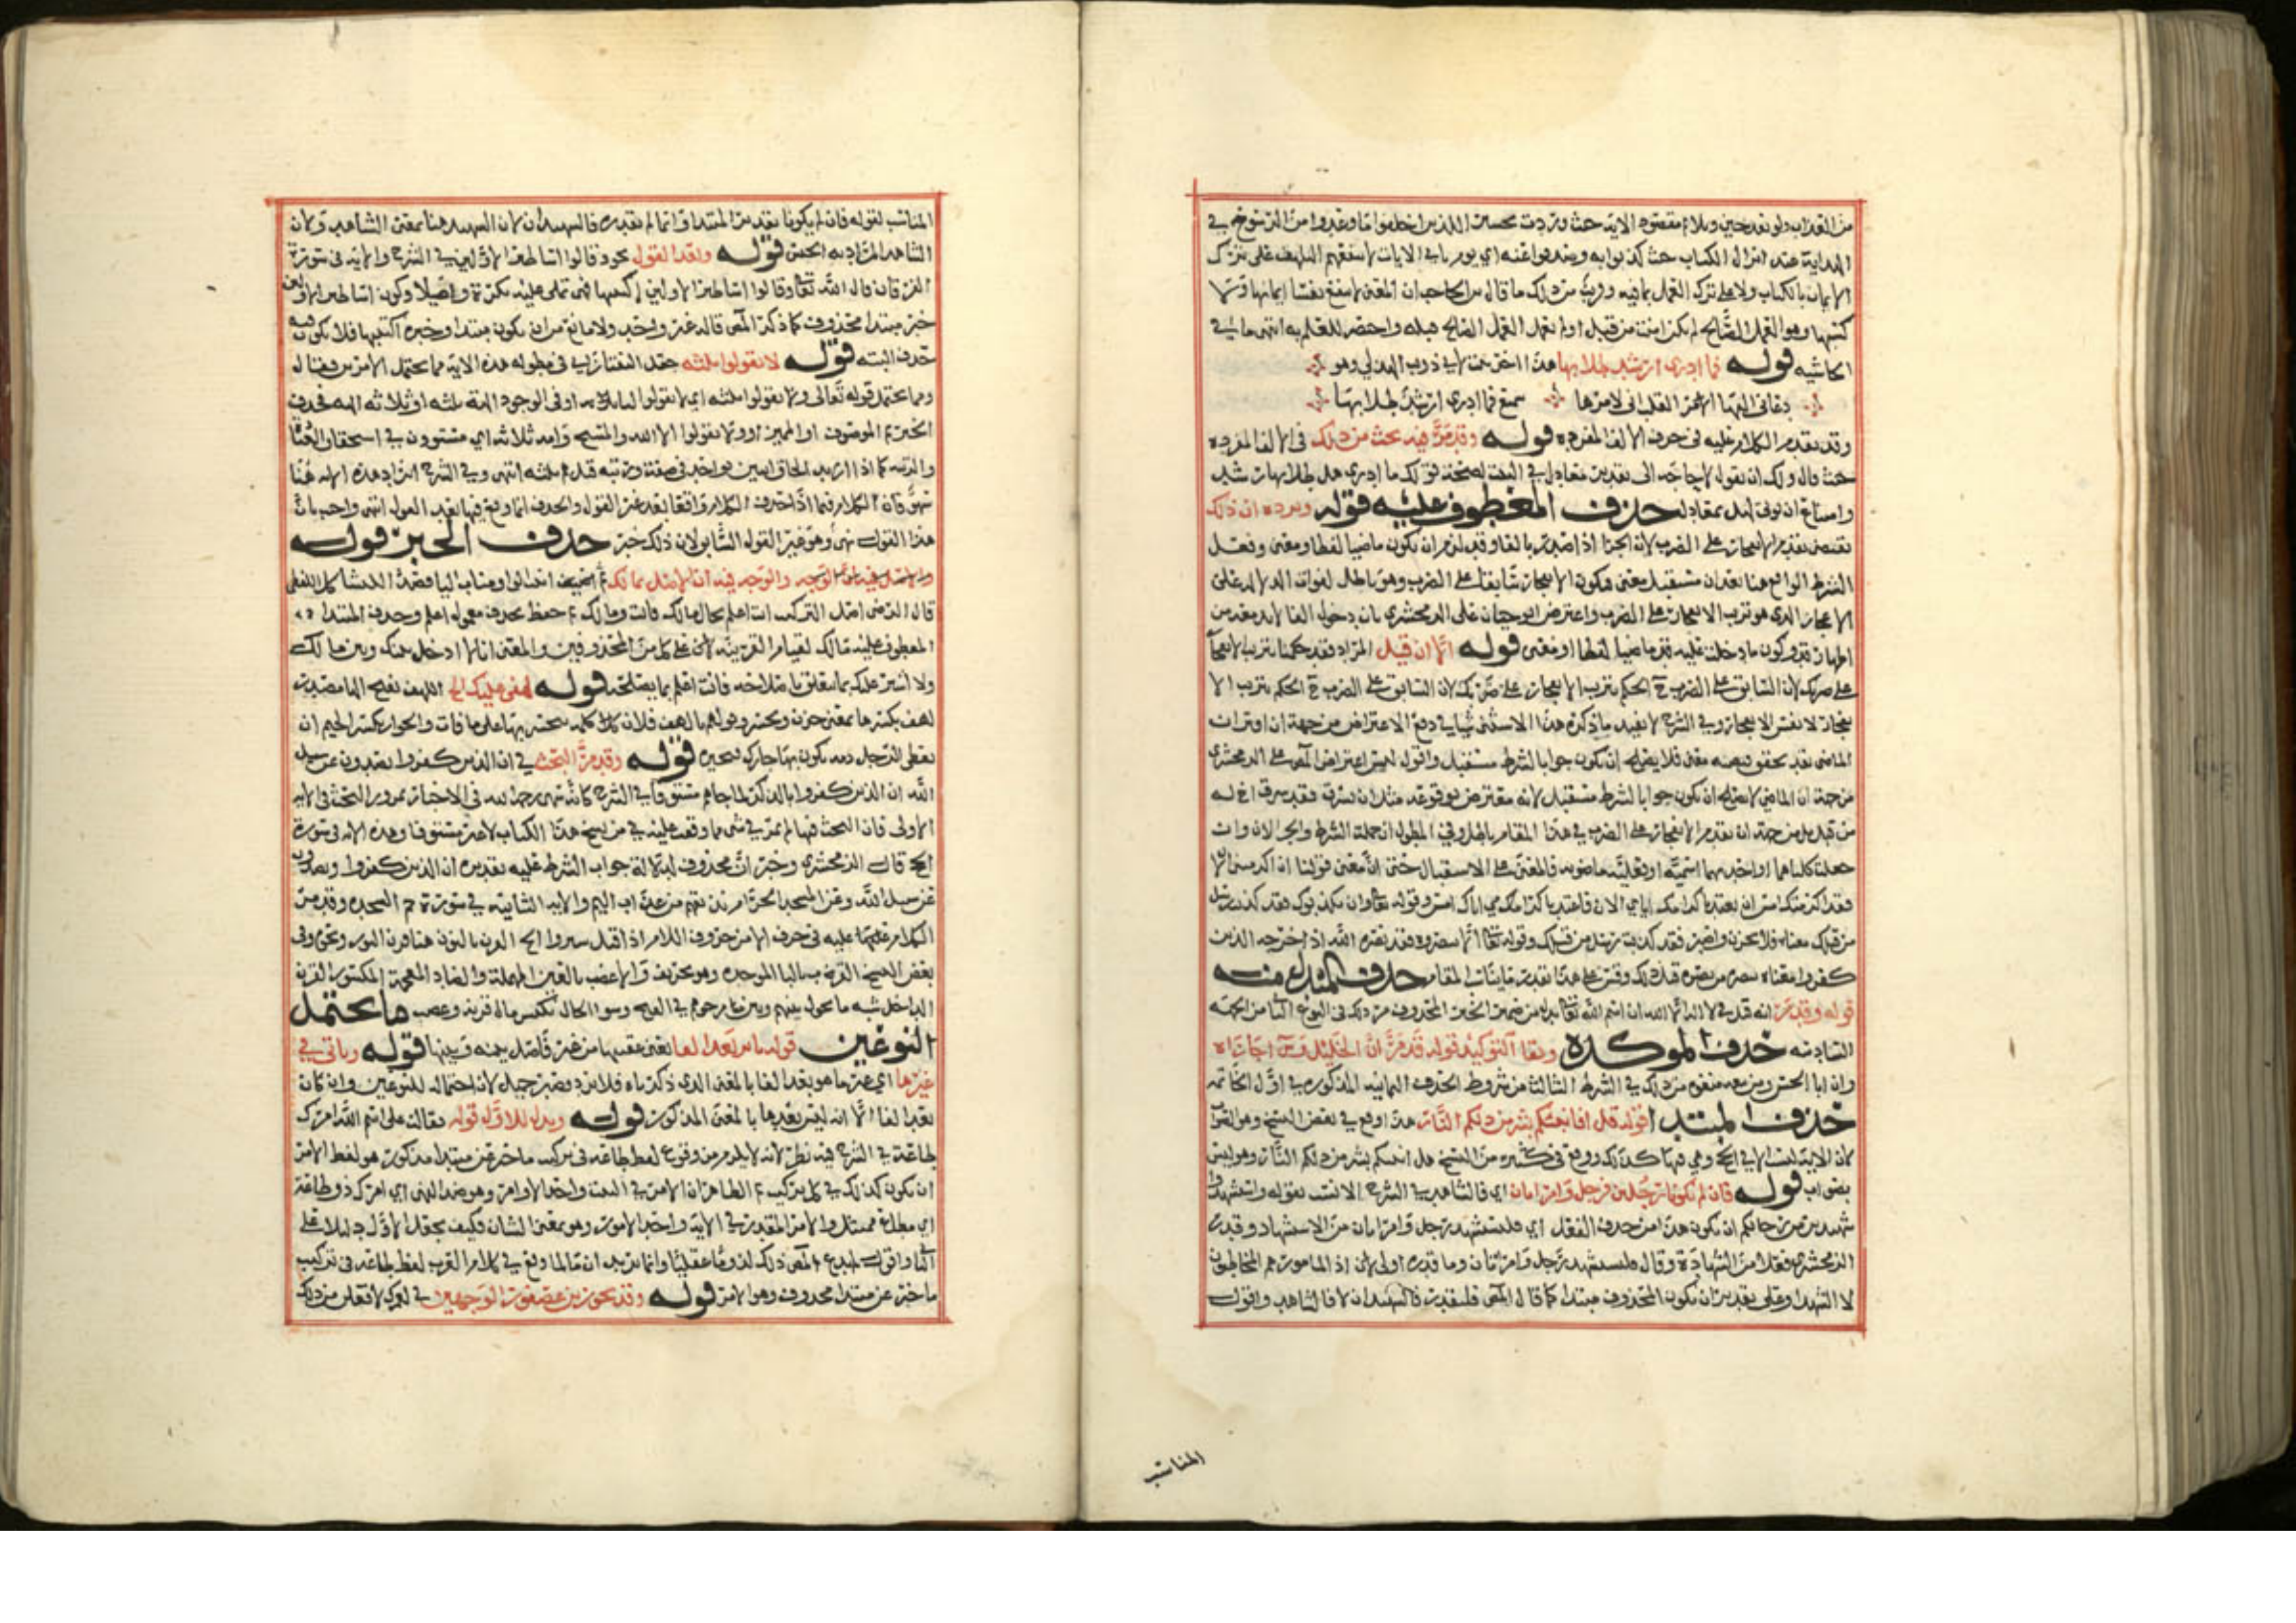 من العذاب ولو بعد حين ويلائم مقصود الاية حيث وردت تحسرا الذين اخلفوا ما وعدوا من الرسوخ في
الهداية عند انزال الكتاب حيث كذبوا به وصدفوا عنه اي يوم ياتي الايات لا ينفعهم التلهف على ترك
الايمان بالكتاب ولا على ترك العمل بما فيه وقريب من ذلك ما قال ابن الحاجب ان المعنى لا ينفع نفسا ايمانها ولا
كسبها وهو العمل الصالح لم تكن امنت من قبل او لم تعمل العمل الصالح قبله واختصر للعلم به انتهى ما في
الحاشيه قوله فما ادري ارشد طلابها هذا اخر بيت لابي ذويب الهذلي وهو
دعاني اليها القلب اني لامرها سميع فما ادري ارشد طلابها
وقد تقدم الكلام عليه في حرف الالف المفرده قوله وقد مر فيه بحث من ذلك في الالف المفرده
حيث قال ولك ان تقول لا حاجة الى تقدير معادل في البيت لصحة قولك ما ادري هل طلابها رشد
وامتناع ان يوتى لهل بمعادل حذف المعطوف عليه قوله ويرده ان ذلك
يقتضي تقدم الانفجار على الضرب لان الجزا اذا اقترن بالفا وقد لزم ان يكون ماضيا لفظا ومعنى وفعل
الشرط الواقع هنا بعد ان مستقبل معنى فيكون الانفجار سابقا على الضرب وهو باطل لفوات الدلالة على
الاعجاز الذي هو ترتب الانفجار على الضرب واعترض ابو حيان على الزمخشري بان دخول الفا لا بد معه من
اظهار قد وكون ما دخلت عليه قد ماضيا لفظا او معنى قوله الا ان قيل المراد فقد حكمنا بترتب الانفجار
على ضربك لان السابق على الضرب الحكم بترتب الانفجار على ضربك لان السابق على الضرب الحكم بترتب الا
نفجار لا نفس الانفجار وفي الشرح لا يفيد ما ذكره هذا الاستثنى شيا في دفع الاعتراض من جهة ان اقتران
الماضي بقد يحقق مضيه معنى فلا يصلح ان يكون جوابا لشرط مستقبل واقول ليس اعتراض المص على الزمخشري
من جهة ان الماضي لا يصلح ان يكون جوابا لشرط مستقبل لانه معترض بوقوعه مثل ان يسرق فقد سرق اخ له
من قبل بل من جهة ان تقدم الانفجار على الضرب في هذا المقام باطل وفي المطول ان جملة الشرط والجزا وان
جعلت كلتاهما او احديهما اسمية او فعلية ماضويه فالمعنى على الاستقبال حتى ان معنى قولنا ان اكرمتني الان
فقد اكرمتك امس ان تعتد باكرامك اياي الان فاعتد باكرامي اياك امس وقوله تعا وان يكذبوك فقد كذبت رسل
من قبلك معناه فلا تحزن واصبر فقد كذبت رسل من قبلك وقوله تعا الا تنصروه فقد نصره الله اذ اخرجه الذين
كفروا معناه من نصره قبل ذلك وقس على هذا تقدير ما يناسب المقام حذف المبدل منه
قوله وقد مر انه قيل في لا اله الا الله ان اسم الله تعا بدل من ضمير الخبر المحذوف مر ذلك في النوع الثامن من الجهة
السادسه حذف الموكده وبقا التوكيد قوله قد مر ان الخليل وس اجازاه
وان ابا الحسن ومن معه منعوه مر ذلك في الشرط الثالث من شروط الحذف الثمانيه المذكوره في اول الخاتمه
حذف المبتدا قوله قل افانبئكم بشر من ذلكم النار هذا وقع في بعض النسخ وهو الصواب
لان الاية ليست الا في الحج وهي فيها كذلك ووقع في كثير من النسخ هل انبئكم بشر من ذلكم النار وهو ليس
بصواب قوله فان لم يكونا رجلين فرجل وامراتان اي فالشاهد في الشرح الانسب بقوله واستشهدوا
شهيدين من رجالكم ان يكون هذا من حذف الفعل اي فليستشهد رجل وامراتان من الاستشهاد وقدره
الزمخشري فعلا من الشهادة وقال فليشهد رجل وامراتان وما قدره اولى لان اذ المامور هم المخاطبون
لا الشهدا وعلى تقدير ان يكون المحذوف مبتدا كما قال المص فليقدر فالشهيدان لا فالشاهد واقول
المناسب
المناسب لقوله فان لم يكونا تقدير المبتدا وانما لم يقدره فالشهيدان لان الشهيد هنا بمعنى الشاهد ولان
الشاهد المراد به الجنس قوله وبعد القول نحو وقالوا اساطير الاولين في الشرح والاية في سورة
الفرقان قال الله تعا وقالوا اساطير الاولين اكتتبها فهي تملى عليه بكرة واصيلا وكون اساطير الاولين
خبر مبتدا محذوف كما ذكر المص قاله غير واحد ولا مانع من ان يكون مبتدا وخبره اكتتبها فلا يكون فيه
حذف البته قوله لا تقولوا ثلثه جعل التفتازاني في مطوله هذه الاية مما يحتمل الامرين فقال
ومما يحتمل قوله تعالى ولا تقولوا ثلثه اي لا تقولوا لنا او في الوجود الهة ثلثه او ثلاثه الهه فحذف
الخبر ثم الموصوف او المميز او ولا تقولوا الله والمسيح وامه ثلاثه اي مستوون في استحقاق العبادة
والرتبه كما اذا اريد الحاق اثنين بواحد في صفة ورتبه قيل هم ثلثه انتهى وفي الشرح ايراد هذه الايه هنا
سهو فان الكلام فيما اذا حذف الكلام واقعا بعد غير القول والحذف انما وقع فيها بعد القول انتهى واجيب بان
هذا القول نهى وهو غير القول السابق لان ذلك خبر حذف الخبر قوله
قال الرضى اصل التركيب انت اعلم بحال مالك فانت ومالك ثم حفظ بحذف معمول اعلم وحذف المبتدا
المعطوف عليه مالك لقيام القرينه على كل من المحذوفين والمعنى انا لا ادخل بينك وبين مالك
ولا اشير عليك بما يتعلق باصلاحه فانت اعلم بما يصلحه قوله لهفي عليك الخ اللهف بفتح الها مصدر
لهف بكسرها بمعنى حزن وتحسر وقولهم يا لهف فلان كلمه يتحسر بها على ما فات والجوار بكسر الجيم ان
تعطي الرجل ذمه يكون بها جارك فتجيره قوله وقد مر البحث في ان الذين كفروا ويصدون عن سبيل
الله ان الذين كفروا بالذكر لما جاهم مستوفا في الشرح كانه سهى رحمه الله في الاخبار بمرور البحث في الايه
الاولى فان البحث فيها لم يمر في شي مما وقفت عليه في من نسخ هذا الكتاب لا غير مستوفا وهذه الايه في سورة
الحج قال الزمخشري وخبر ان محذوف لدلالة جواب الشرط عليه تقديره ان الذين كفروا ويصدون
عن سبيل الله وعن المسجد الحرام نذيقهم من عذاب اليم والاية الثانيه في سورة حم السجده وقد مر
بعض النسخ القريه بالبا الموحده وهو تحريف والاعضب بالعين المهملة والضاد المعجمة المكسور القرن
ما يحتمل
النوعين قوله ما بعد الفا يعني عقبها من غير فاصل بينه وبينها قوله وياتي في
غيرها اي غير ما هو بعد الفا بالمعنى الذي ذكرناه فلا يرد فصبر جميل لان احتماله للنوعين وان كان
بعد الفا الا انه ليس بعدها بالمعنى المذكور قوله ويدل للاول قوله فقالت على اسم الله امرك
طاعة في الشرح فيه نظر لانه لا يلزم من وقوع لفظ طاعه في تركيب ما خبر عن مبتدا مذكور هو لفظ الامر
ان يكون كذلك في كل تركيب ثم الظاهر ان الامر في البيت واحد الاوامر وهو ضد النهي اي امرك ذو طاعة
اي مطاع ممتثل والامر المقدر في الاية واحد الامور وهو بمعنى الشان فكيف يجعل الاول دليلا على
الثاني واقول لم يدع المص ذلك لزوما عقليا وانما يريد ان قالما وقع في كلام العرب لفظ طاعه في تركيب
ما خبر عن مبتدا محذوف وهو الامر قوله وقد جوز ابن عصفور الوجهين في لعمرك لافعلن مر ذلك